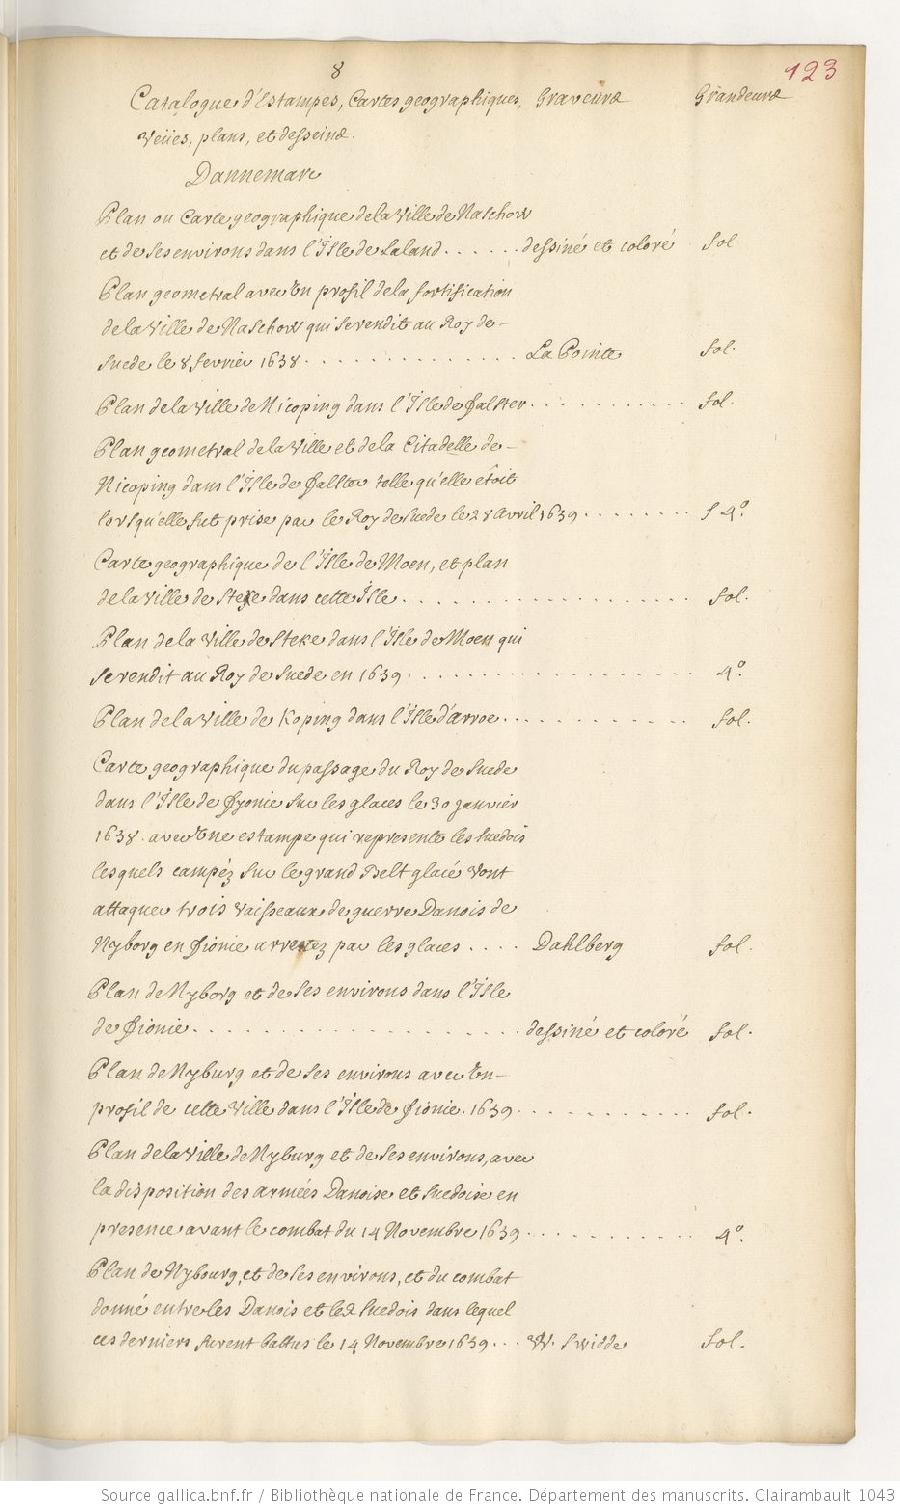 8
123
Catalogue d'Estampes, Cartes geographiques, Graveurs Grandeurs
veües, plans, et desseins
Dannemarc
Plan ou Carte geographique de la ville de Naschow
et de ses environs dans l'Isle de Laland...... dessiné et coloré fol
Plan geometral avec un profil de la fortification
de la ville de Naschow qui se rendit au Roy de
Suede le 8 fevrier 1658............... La Pointe fol.
Plan de la ville de Nicoping dans l'Isle de Falster........... fol.
Plan geometral de la ville et de la Citadelle de
Nicoping dans l'Isle de Falster telle qu'elle étoit
lorsqu'elle fut prise par le Roy de Suede le 28 Avril 1659........ f 4°.
Carte geographique de l'Isle de Moen, et plan
de la ville de Steke dans cette Isle.................... fol.
Plan de la ville de Steke dans l'Isle de Moen qui
se rendit au Roy de Suede en 1659................... 4°
Plan de la ville de Koping dans l'Isle d'arroe............ fol.
Carte geographique du passage du Roy de Suede
dans l'Isle de Fyonie sur les glaces le 30 Janvier
1658. avec une estampe qui represente les Suedois
lesquels campéz sur le grand Belt glacé vont
attaquer trois vaisseaux de guerre Danois de
Nyborg en Fionie arretez par les glaces.... Dahlberg fol.
Plan de Nyborg et de ses environs dans l'Isle
de Fionie.................... dessiné et coloré fol.
Plan de Nyburg et de ses environs avec un
profil de cette ville dans l'Isle de Fionie. 1659........... fol.
Plan de la ville de Nyburg et de ses environs, avec
la disposition des armées Danoise et Suedoise en
presence avant le combat du 14 Novembre 1659........... 4°.
Plan de Nybourg, et de ses environs, et du combat
donné entre les Danois et les Suedois dans lequel
ces derniers furent battus le 14 Novembre 1659... W. Swidde fol.
Source gallica.bnf.fr / Bibliothèque nationale de France. Département des manuscrits. Clairambault 1043